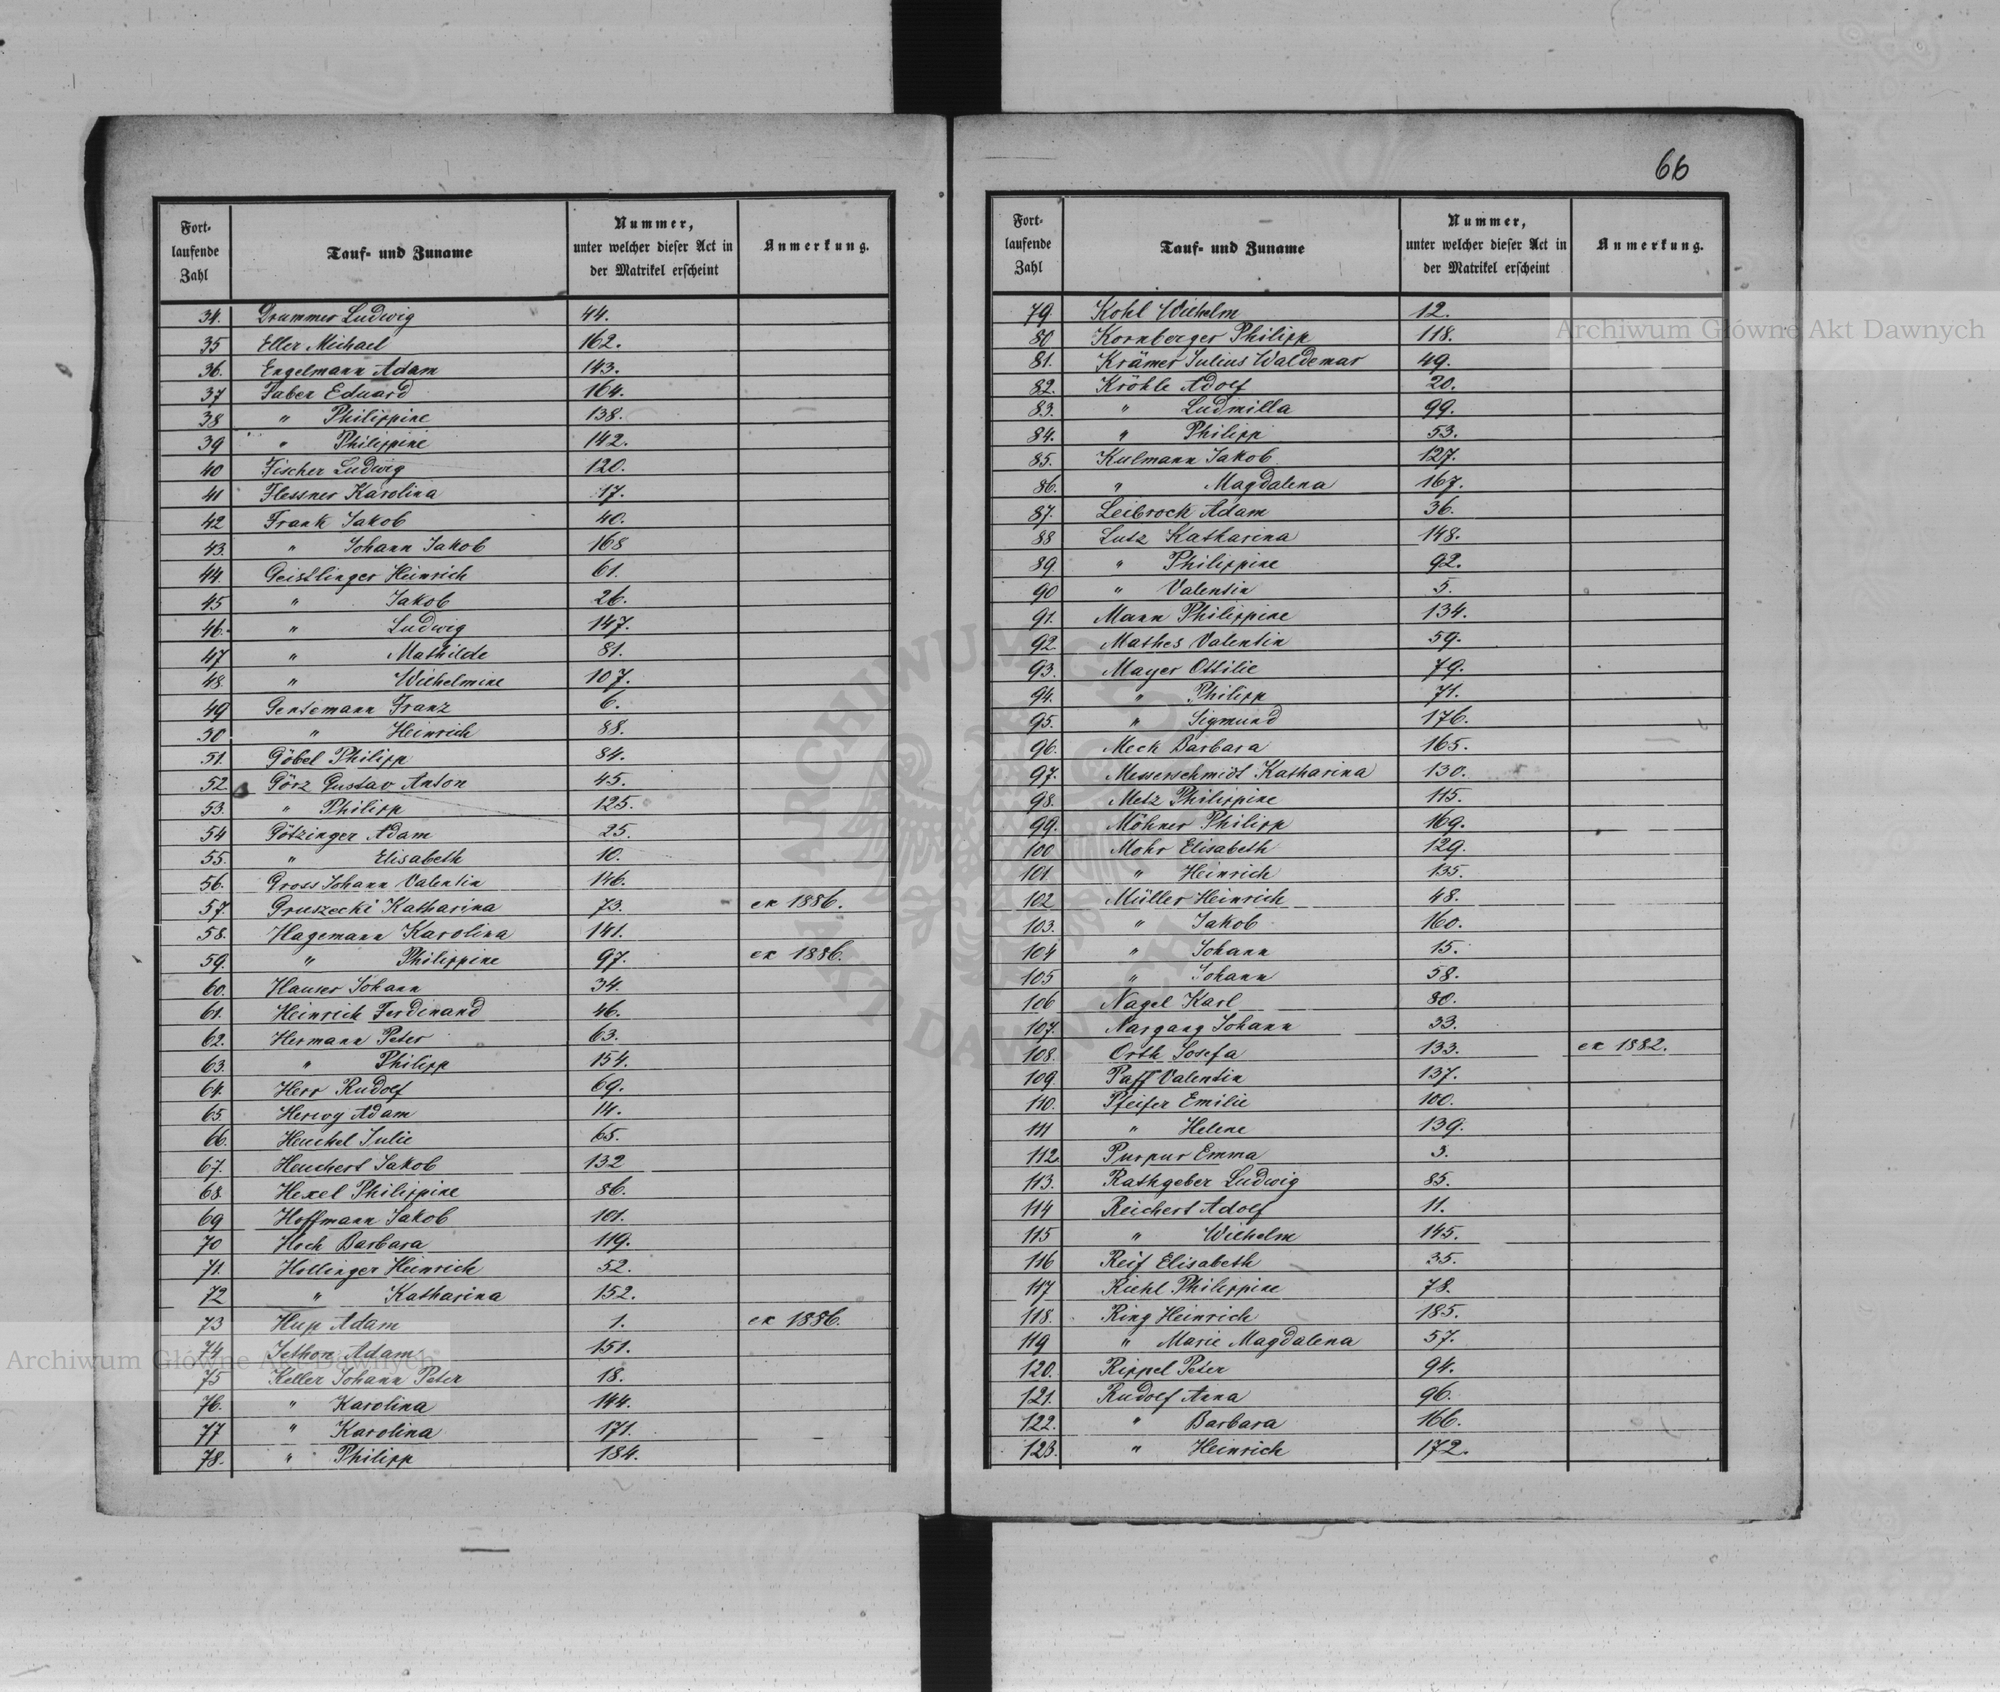 66
Fort-
laufende
Zahl
Tauf- und Zuname
Nummer,
unter welcher dieser Act in
der Matrikel erscheint
Anmerkung.
34. Drummer Ludwig 44.
35 Eller Michael 162.
36. Engelmann Adam 143.
37 Faber Eduard 164.
38 " Philippine 138.
39 " Philippine 142.
40 Fischer Ludwig 120.
41 Flessner Karolina 17.
42 Frank Jakob 40.
43. " Johann Jakob 168
44. Geistlinger Heinrich 61.
45 " Jakob 26.
46. " Ludwig 147.
47 " Mathilde 81.
48. " Wilhelmine 107.
49 Gensemann Franz 6.
50 " Heinrich 88.
51. Göbel Philipp 84.
52 Görz Gustav Anton 45.
53. " Philipp 125.
54 Götzinger Adam 25.
55. " Elisabeth 10.
56. Gross Johann Valentin 146.
57. Gruszecki Katharina 73. ex 1886.
58. Hagemann Karolina 141.
59. " Philippine 97. ex 1886.
60. Hauser Johann 34.
61. Heinrich Ferdinand 46.
62. Hermann Peter 63.
63. " Philipp 154.
64. Herr Rudolf 69.
65. Hervy Adam 14.
66. Heuchel Julie 65.
67. Heuchert Jakob 132
68. Hexel Philippine 86.
69 Hoffmann Jakob 101.
70 Hoch Barbara 119.
71. Hollinger Heinrich 52.
72 " Katharina 152.
73 Hup Adam 1. ex 1886.
74 Jethon Adam 151.
75 Keller Johann Peter 18.
76. " Karolina 144.
77 " Karolina 171.
78. " Philipp 184.
Fort-
laufende
Zahl
Tauf- und Zuname
Nummer,
unter welcher dieser Act in
der Matrikel erscheint
Anmerkung.
79. Kohl Wilhelm 12.
80 Kornberger Philipp 118.
81. Krämer Julius Waldemar 49.
82. Kröhle Adolf 20.
83. " Ludmilla 99.
84. " Philipp 53.
85. Kulmann Jakob 127.
86. " Magdalena 167.
87. Leibrock Adam 36.
88 Lutz Katharina 148.
89. " Philippine 92.
90 " Valentin 5.
91. Mann Philippine 134.
92 Mathes Valentin 59.
93. Mayer Ottilie 79.
94. " Philipp 71.
95. " Sigmund 176.
96. Meck Barbara 165.
97. Messerschmidt Katharina 130.
98. Metz Philippine 115.
99. Möhner Philipp 169.
100 Mohr Elisabeth 129.
101. " Heinrich 135.
102 Müller Heinrich 48.
103. " Jakob 160.
104 " Johann 15.
105 " Johann 58.
106 Nagel Karl 80.
107. Nargang Johann 33.
108. Orth Josefa 133. ex 1882.
109. Paff Valentin 137.
110. Pfeifer Emilie 100.
111 " Helene 139.
112. Purpur Emma 3.
113. Rathgeber Ludwig 85.
114 Reichert Adolf 11.
115 " Wilhelm 145.
116 Reif Elisabeth 35.
117 Riehl Philippine 78.
118. Ring Heinrich 185.
119 " Marie Magdalena 57.
120. Rippel Peter 94.
121. Rudolf Anna 96.
122. " Barbara 166.
123. " Heinrich 172.
Archiwum Główne Akt Dawnych
Archiwum Główne Akt Dawnych
ARCHIWUM GŁÓWNE AKT DAWNYCH